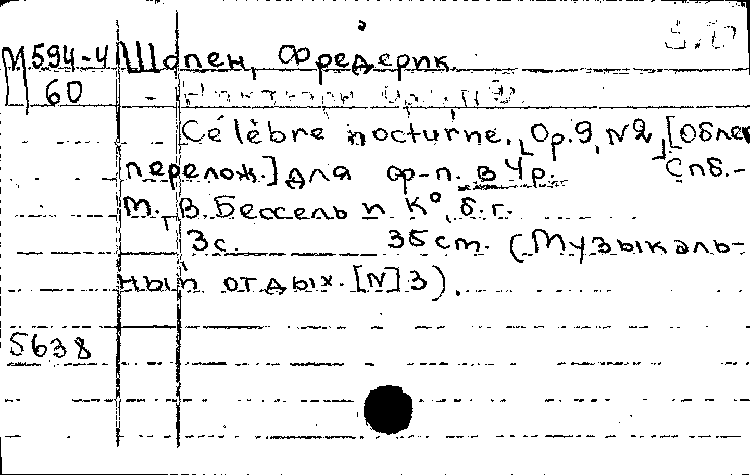 М594-4 Шопен, Фредерик.
60 - Ноктюрн Op.
Célèbre nocturne, Op.9, N2, [Облег
перелож.] для ф-п. в 4 р. Спб.-
М., В. Бессель и К°, б.г.
3с. 35 см. (Музыкаль-
ный отдых. [N] 3).
5638